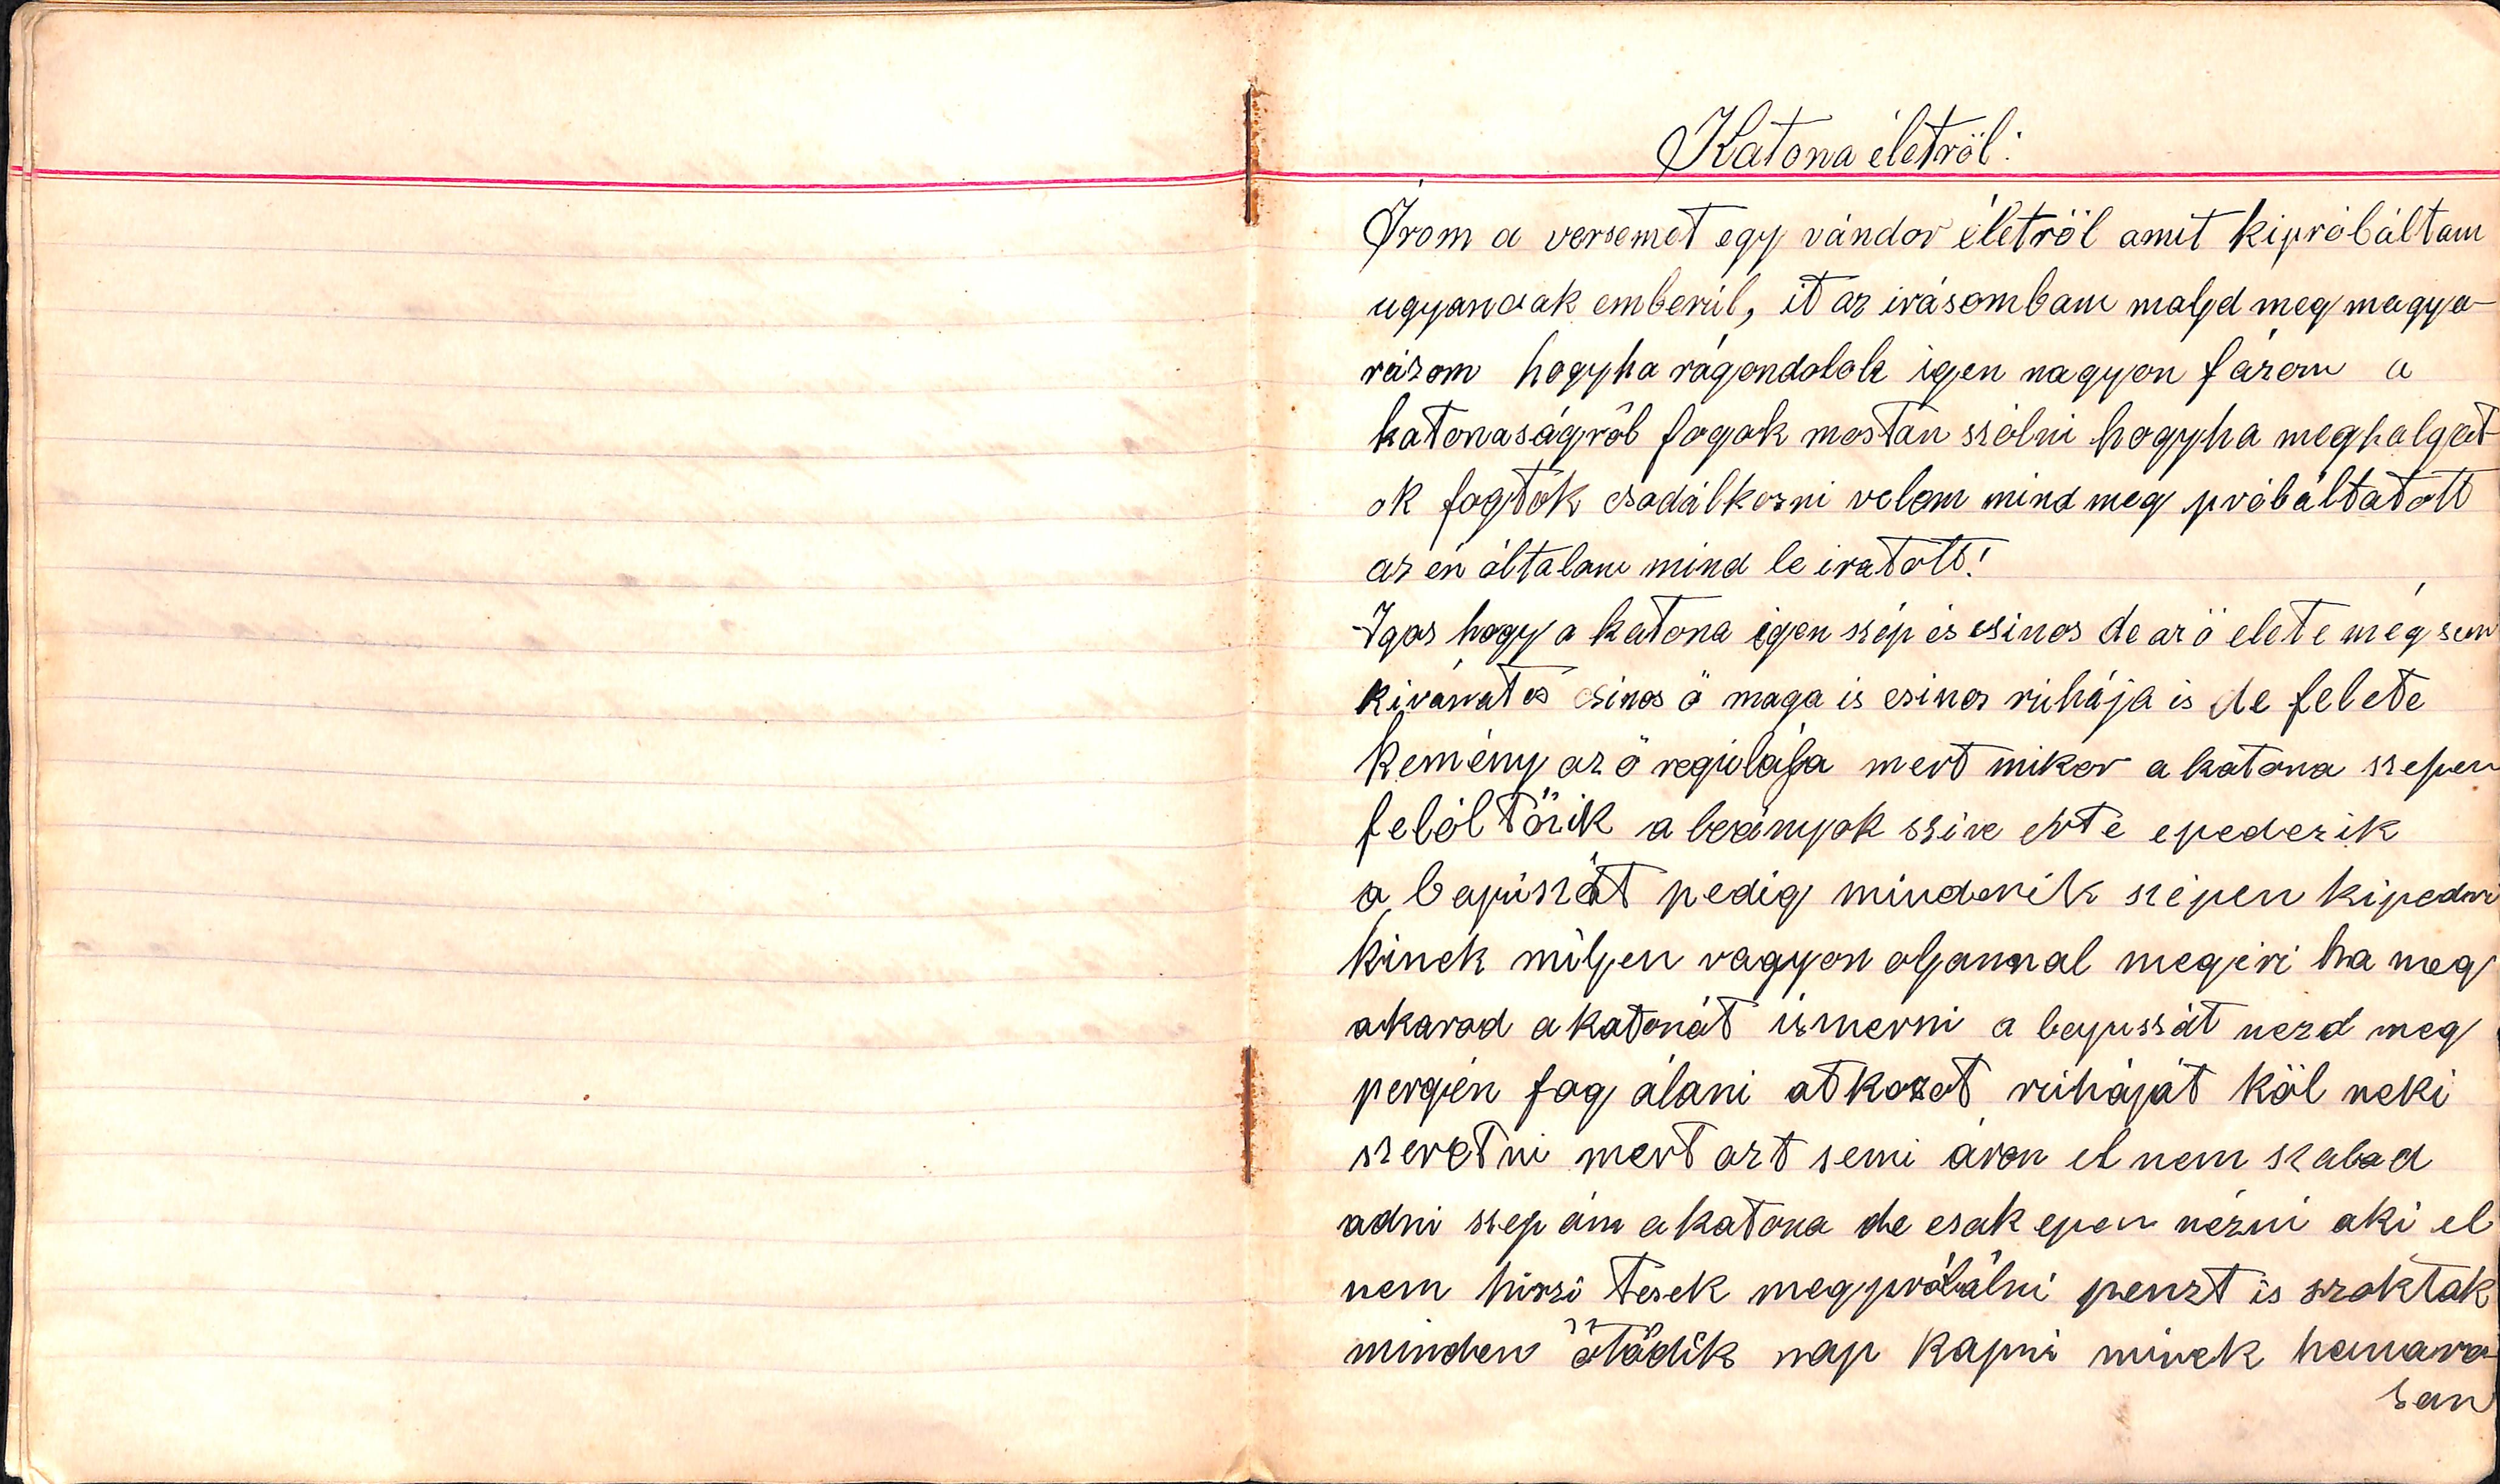 Katona életröl:
Írom a versemet egy vándor életröl amit kipróbáltam
ugyancsak emberül, it az irásomban majd meg magya-
rázom hogyha rágondolok igen nagyon fázom a
katonaságról fogok mostán szólni hogyha meghalgat
ok fogtok csodálkozni velem mind meg próbáltatott
az én általam mind le iratott!
Igaz hogy a katona igen szép és csinos de az ö elete még sem
kivánatos csinos ö maga is csinos ruhája is de felete
kemény az ö regulája mert mikor a katona szepen
felöltözik a leányok szive érte epedezik
a bajúszát pedig mindenik szépen kipedri
kinek miljen vagyon oljannal megéri ha meg
akarod a katonát üsmerni a bajusszát nezd meg
pergén fog álani átkozot ruháját köl neki
szeretni mert azt semi áron el nem szabad
adni szep ám a katona de csak epen nézni aki el
nem hiszi tesék megpróbálni penzt is szoktak
minden ötödik nap kapni minek hamara-
san